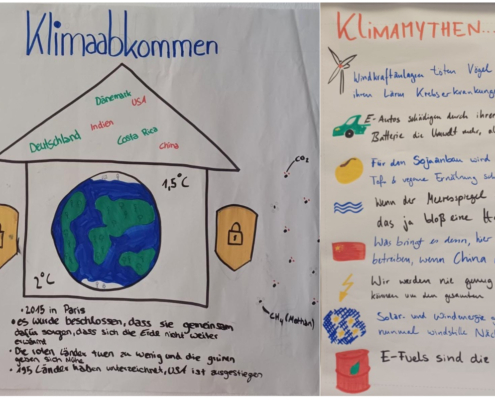 Klimaabkommen
Dänemark
USA
Indien
Deutschland
Costa Rica
China
1,5°C
2°C
CO₂
CH₄ (Methan)
• 2015 in Paris
• es wurde beschlossen, dass sie gemeinsam
dafür sorgen, dass sich die Erde nicht weiter
erwärmt
• Die roten Länder tuen zu wenig und die grünen
geben sich Mühe
• 195 Länder haben unterzeichnet, USA ist ausgestiegen
KLIMAMYTHEN...
Windkraftanlagen töten Vögel
ihren Lärm Krebserkrankung
E-Autos schädigen durch ihre
Batterie die Umwelt mehr, al
Für den Sojaanbau wird
Tofu & vegane Ernährung sch
Wenn der Meeresspiegel
das ja bloß eine
Was bringt es denn, hier
betreiben, wenn China
Wir werden nie genug
können um den gesamten
Solar- und Windenergie
nunmal windstille Näc
E-Fuels sind die